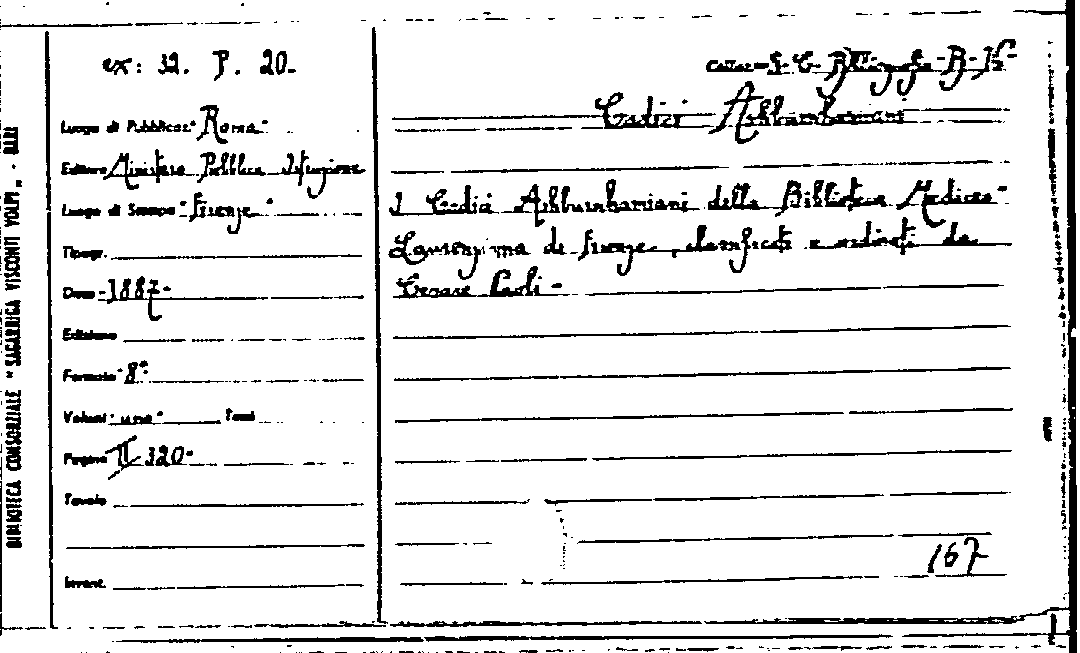 BIBLIOTECA CONSORZIALE "SAGARRIGA VISCONTI VOLPI" - BARI
ex: 32. P. 20-
Luogo di Pubblicaz. Roma
Editore Ministero Pubblica Istruzione
Luogo di Stampa Firenze
Tipogr.
Data 1887
Edizione
Formato 8°
Volumi uno Tomi
Pagine II 320
Tavole
Invent.
Collaz. S. C. Bibliografia-B-
Codici Ashburnhamiani
I Codici Ashburnhamiani della Biblioteca Medicea
Laurenziana di Firenze, classificati e ordinati da
Cesare Paoli -
167